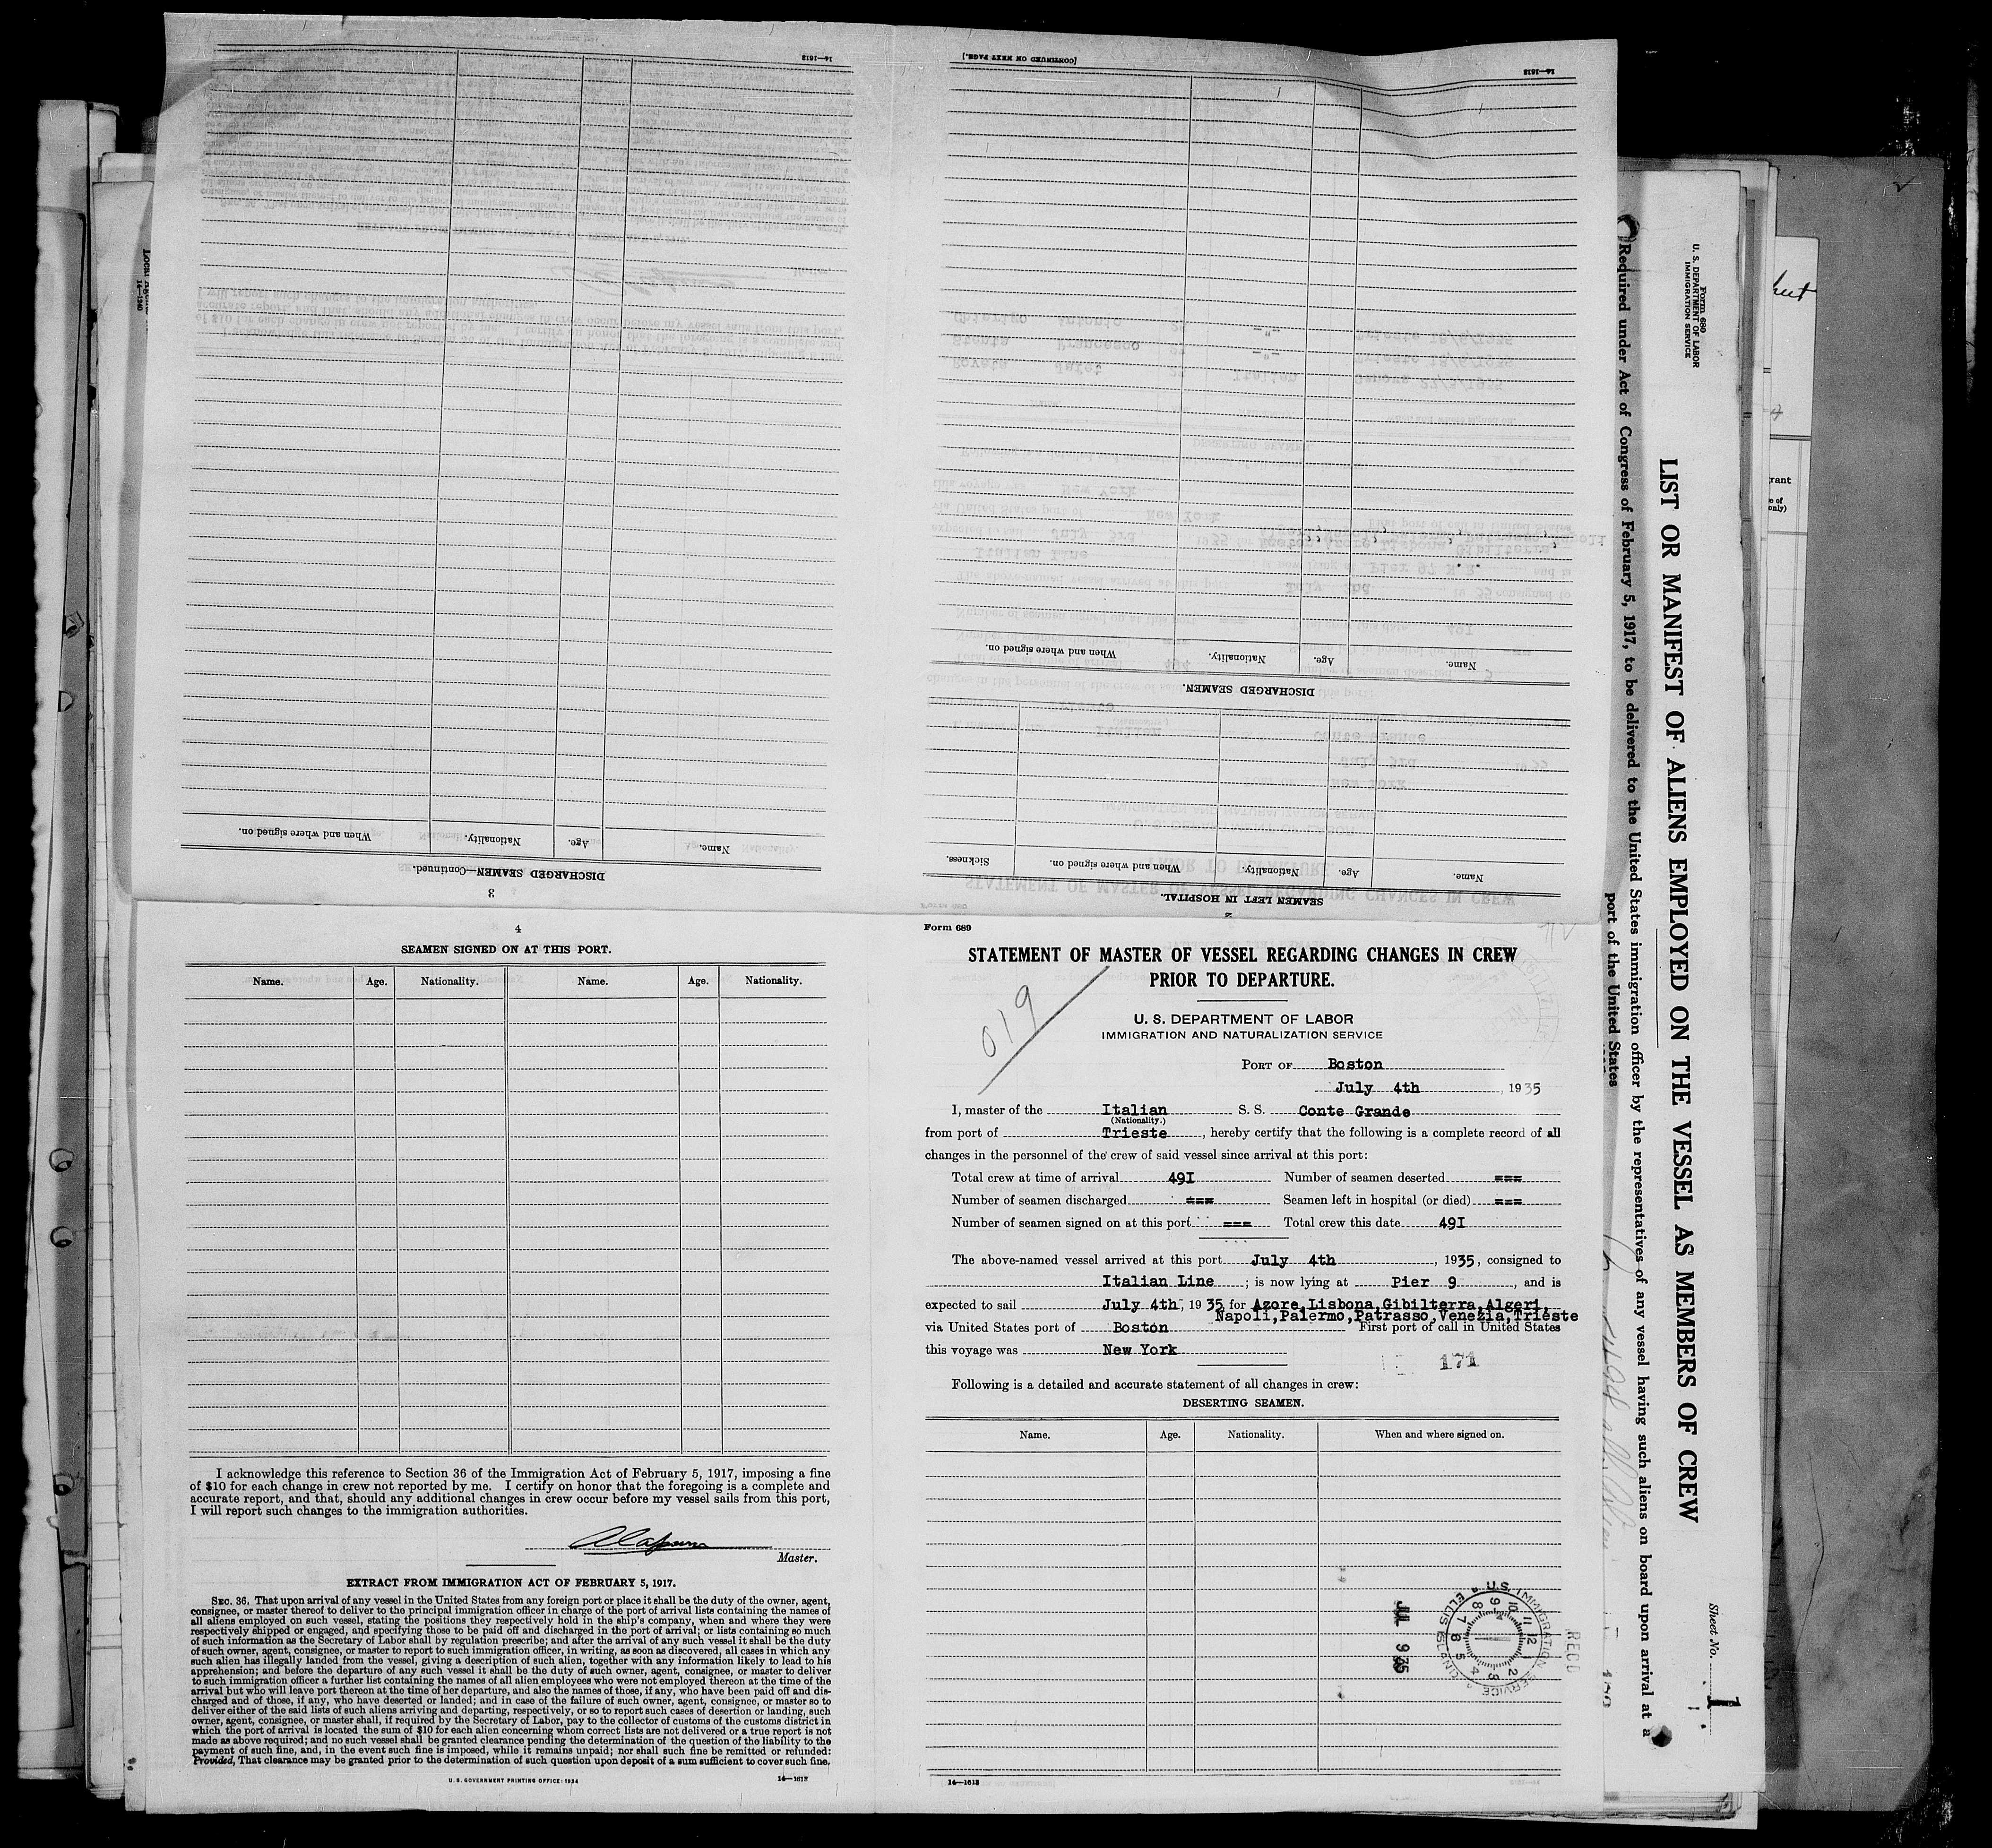 Form 689
STATEMENT OF MASTER OF VESSEL REGARDING CHANGES IN CREW
PRIOR TO DEPARTURE.
019
U. S. DEPARTMENT OF LABOR
IMMIGRATION AND NATURALIZATION SERVICE
PORT OF Boston
July 4th, 1935
I, master of the Italian S. S. Conte Grande
(Nationality.)
from port of Trieste, hereby certify that the following is a complete record of all
changes in the personnel of the crew of said vessel since arrival at this port:
Total crew at time of arrival 49I Number of seamen deserted ===
Number of seamen discharged === Seamen left in hospital (or died) ===
Number of seamen signed on at this port === Total crew this date 49I
The above-named vessel arrived at this port July 4th, 1935, consigned to
Italian Line; is now lying at Pier 9, and is
expected to sail July 4th, 1935 for Azore,Lisbona,Gibilterra,Algeri,
Napoli,Palermo,Patrasso,Venezia,Trieste
via United States port of Boston First port of call in United States
this voyage was New York
171
Following is a detailed and accurate statement of all changes in crew:
DESERTING SEAMEN.
Name. Age. Nationality. When and where signed on.
U.S. IMMIGRATION SERVICE
ELLIS ISLAND
RECD
14—1613
2
SEAMEN LEFT IN HOSPITAL.
Name. Age. Nationality. When and where signed on. Sickness.
DISCHARGED SEAMEN.
Name. Age. Nationality. When and where signed on.
14—1613
[CONTINUED ON NEXT PAGE.]
3
DISCHARGED SEAMEN—Continued.
Name. Age. Nationality. When and where signed on.
14—1613
4
SEAMEN SIGNED ON AT THIS PORT.
Name. Age. Nationality. Name. Age. Nationality.
I acknowledge this reference to Section 36 of the Immigration Act of February 5, 1917, imposing a fine
of $10 for each change in crew not reported by me. I certify on honor that the foregoing is a complete and
accurate report, and that, should any additional changes in crew occur before my vessel sails from this port,
I will report such changes to the immigration authorities.
Master.
EXTRACT FROM IMMIGRATION ACT OF FEBRUARY 5, 1917.
SEC. 36. That upon arrival of any vessel in the United States from any foreign port or place it shall be the duty of the owner, agent,
consignee, or master thereof to deliver to the principal immigration officer in charge of the port of arrival lists containing the names of
all aliens employed on such vessel, stating the positions they respectively hold in the ship's company, when and where they were
respectively shipped or engaged, and specifying those to be paid off and discharged in the port of arrival; or lists containing so much
of such information as the Secretary of Labor shall by regulation prescribe; and after the arrival of any such vessel it shall be the duty
of such owner, agent, consignee, or master to report to such immigration officer, in writing, as soon as discovered, all cases in which any
such alien has illegally landed from the vessel, giving a description of such alien, together with any information likely to lead to his
apprehension; and before the departure of any such vessel it shall be the duty of such owner, agent, consignee, or master to deliver
to such immigration officer a further list containing the names of all alien employees who were not employed thereon at the time of the
arrival but who will leave port thereon at the time of her departure, and also the names of those, if any, who have been paid off and dis-
charged and of those, if any, who have deserted or landed; and in case of the failure of such owner, agent, consignee, or master so to
deliver either of the said lists of such aliens arriving and departing, respectively, or so to report such cases of desertion or landing, such
owner, agent, consignee, or master shall, if required by the Secretary of Labor, pay to the collector of customs of the customs district in
which the port of arrival is located the sum of $10 for each alien concerning whom correct lists are not delivered or a true report is not
made as above required; and no such vessel shall be granted clearance pending the determination of the question of the liability to the
payment of such fine, and, in the event such fine is imposed, while it remains unpaid; nor shall such fine be remitted or refunded:
Provided, That clearance may be granted prior to the determination of such question upon deposit of a sum sufficient to cover such fine.
U. S. GOVERNMENT PRINTING OFFICE: 1934
14—1613
Form 680
U. S. DEPARTMENT OF LABOR
IMMIGRATION SERVICE
Sheet No. 1
LIST OR MANIFEST OF ALIENS EMPLOYED ON THE VESSEL AS MEMBERS OF CREW
Required under Act of Congress of February 5, 1917, to be delivered to the United States immigration officer by the representatives of any vessel having such aliens on board upon arrival at a
port of the United States